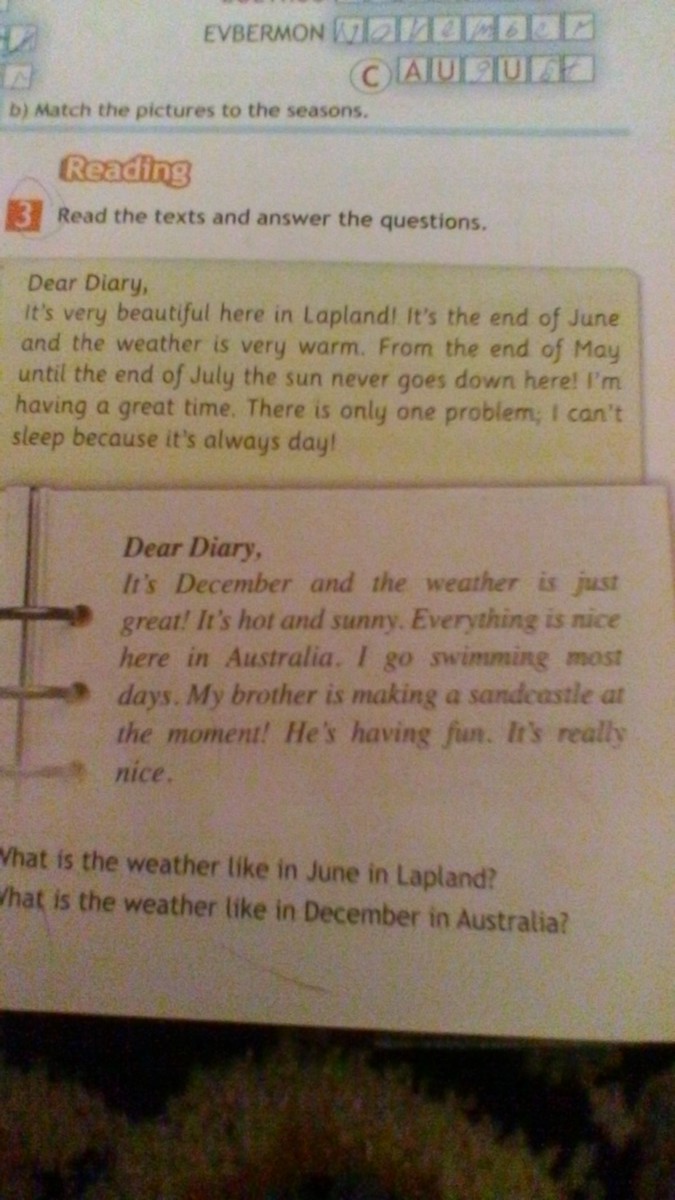 EVBERMON November
C AUGUST
b) Match the pictures to the seasons.
Reading
3 Read the texts and answer the questions.
Dear Diary,
It's very beautiful here in Lapland! It's the end of June
and the weather is very warm. From the end of May
until the end of July the sun never goes down here! I'm
having a great time. There is only one problem; I can't
sleep because it's always day!
Dear Diary,
It's December and the weather is just
great! It's hot and sunny. Everything is nice
here in Australia. I go swimming most
days. My brother is making a sandcastle at
the moment! He's having fun. It's really
nice.
What is the weather like in June in Lapland?
What is the weather like in December in Australia?